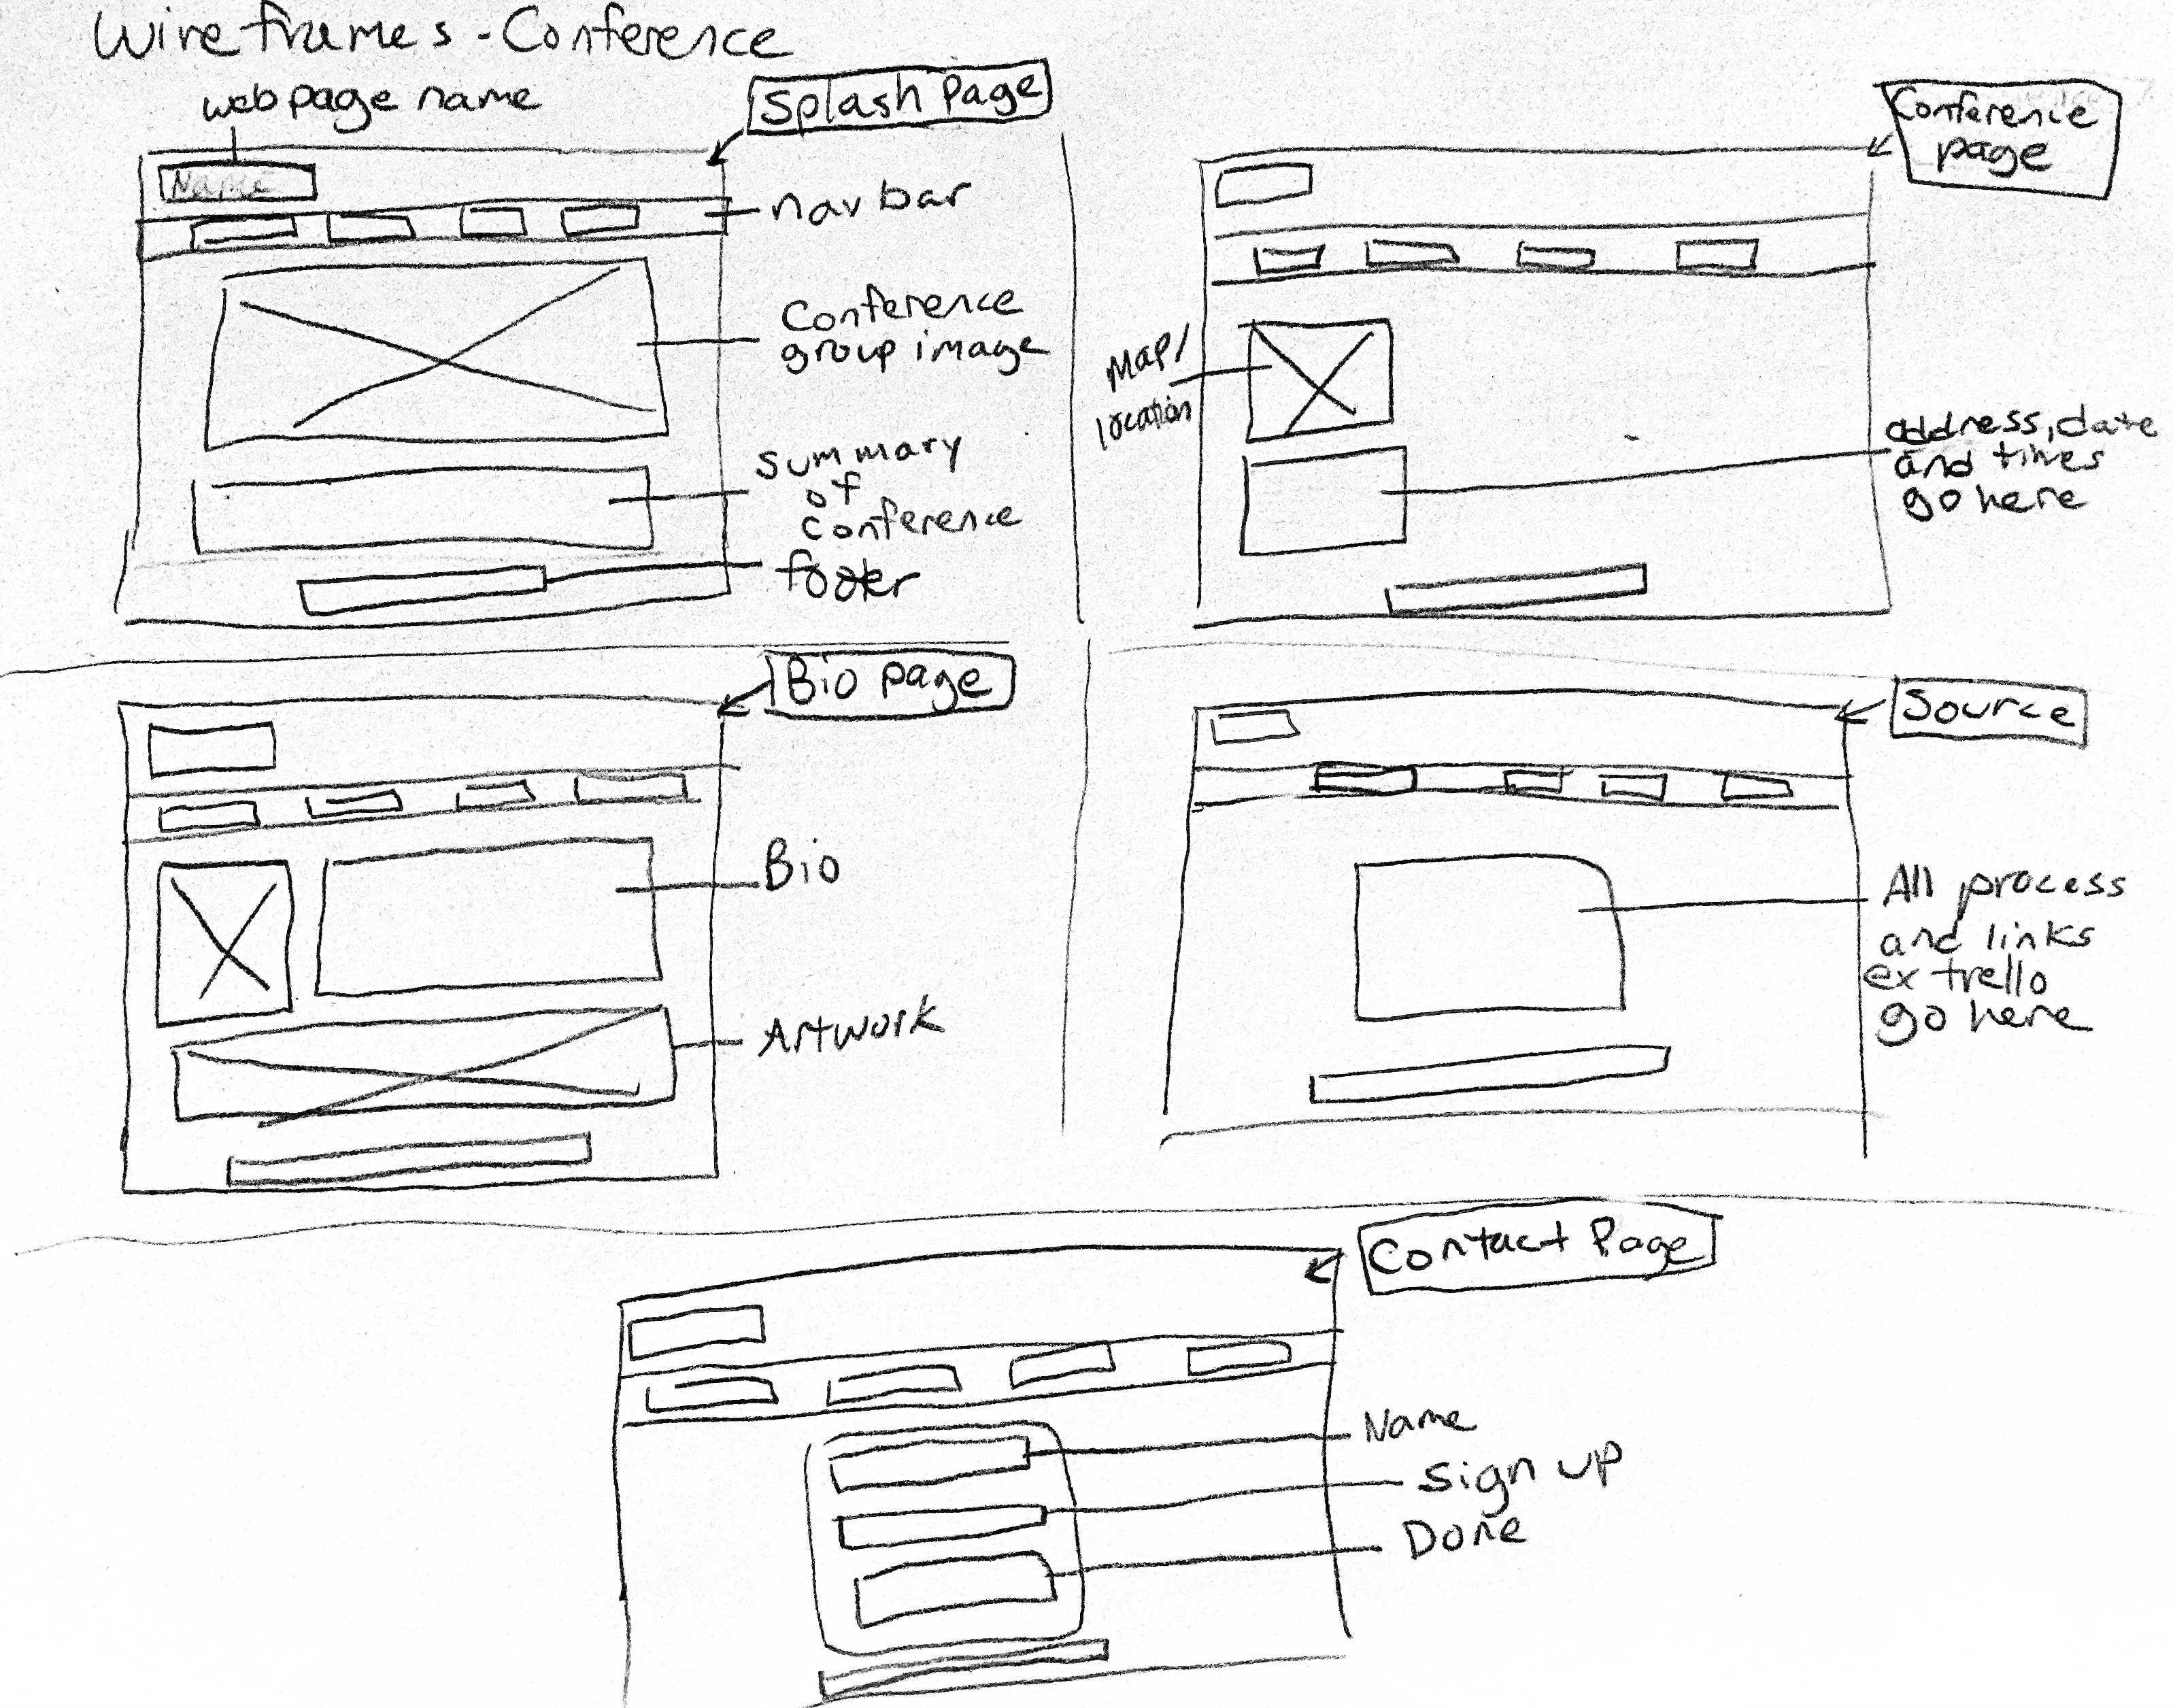 Wireframes - Conference
webpage name
Splash Page
Name
nav bar
Conference
group image
summary
of
conference
footer
Conference
page
Map/
location
address, date
and times
go here
Bio page
Bio
Artwork
Source
All process
and links
ex trello
go here
Contact Page
Name
Sign up
Done